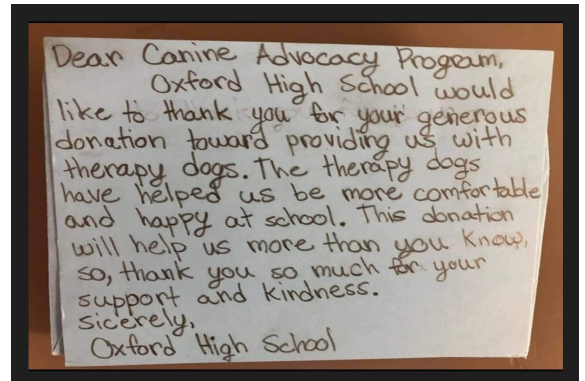 Dear Canine Advocacy Program,
Oxford High School would
like to thank you for your generous
donation toward providing us with
therapy dogs. The therapy dogs
have helped us be more comfortable
and happy at school. This donation
will help us more than you know,
so, thank you so much for your
support and kindness.
sicerely,
Oxford High School